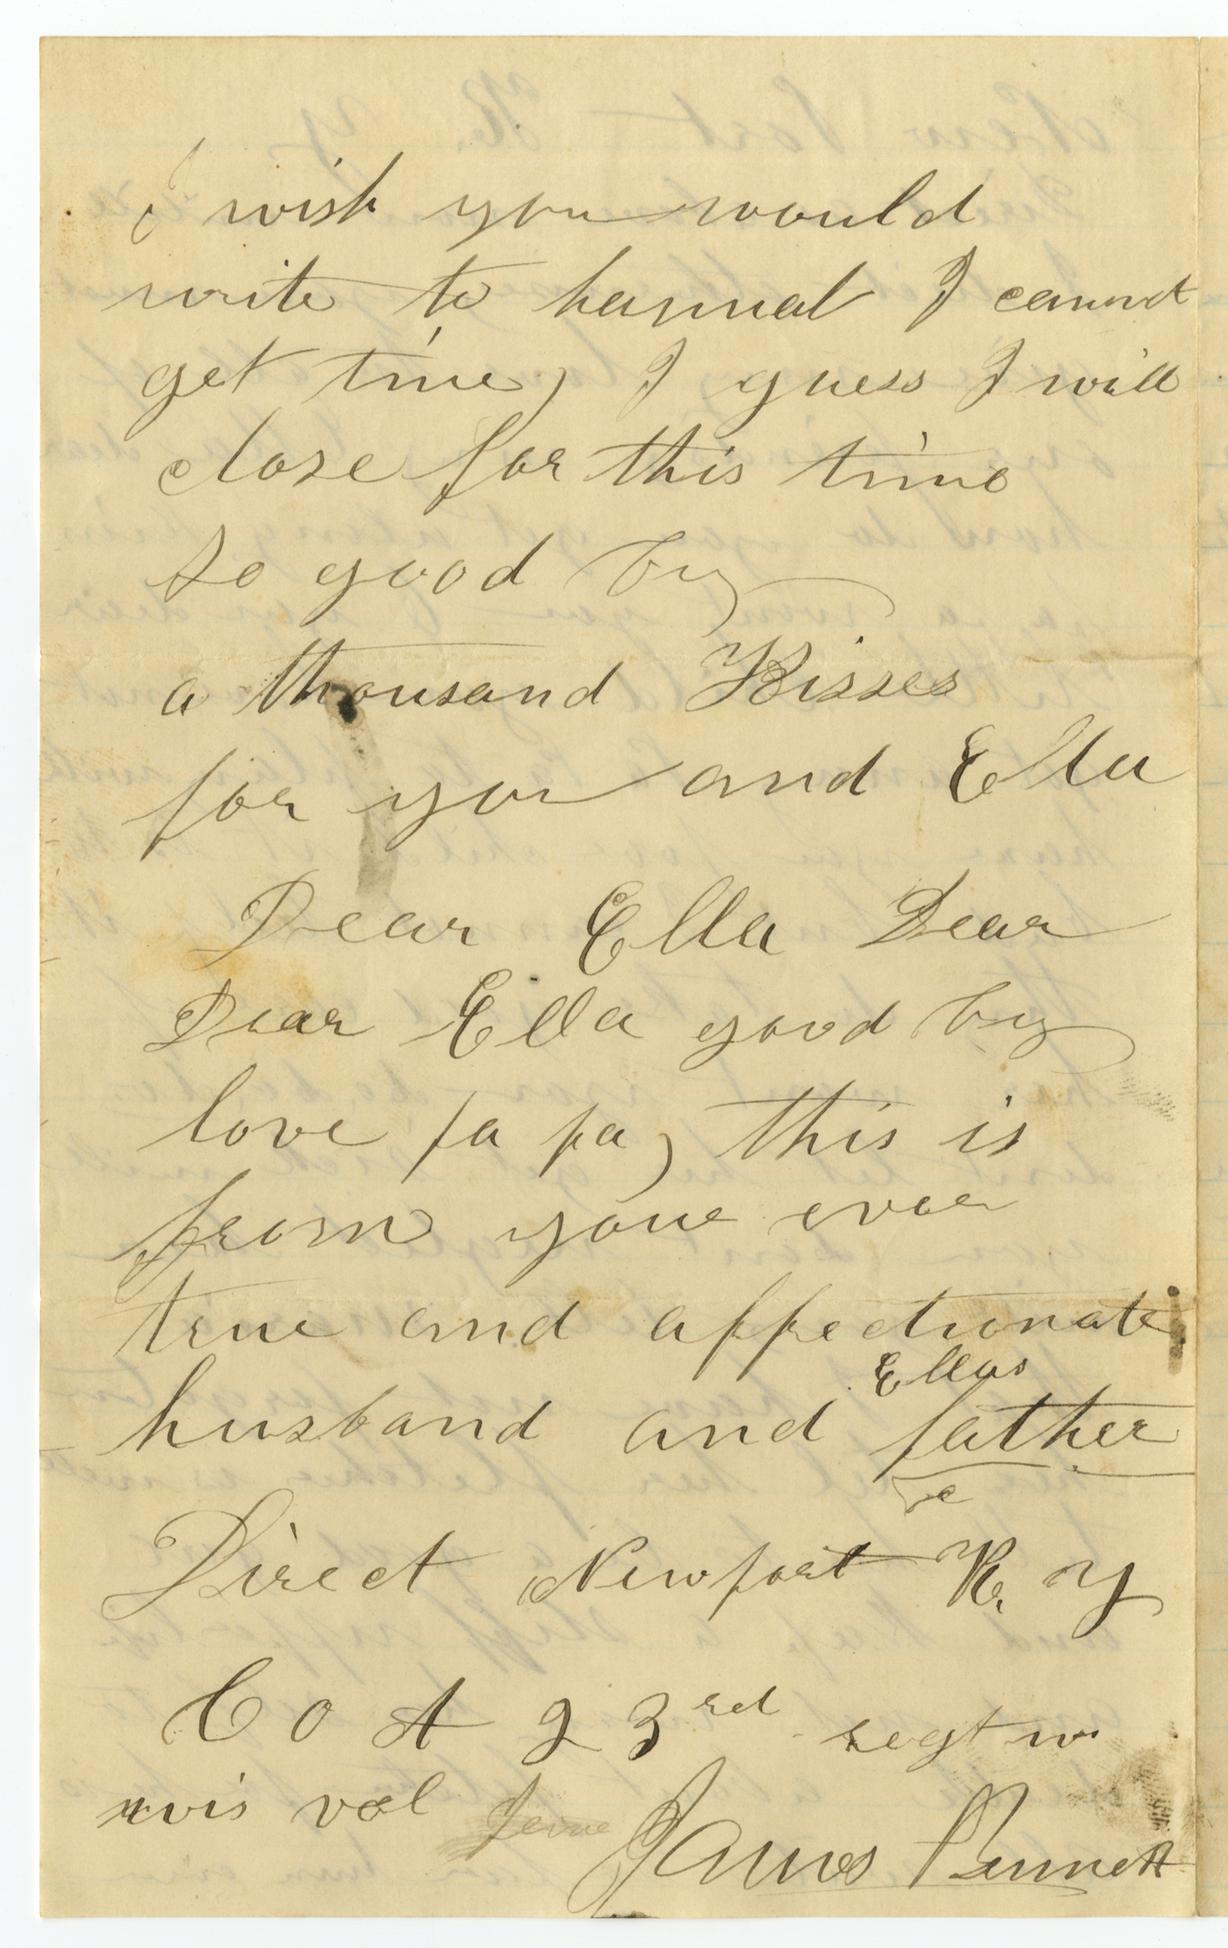 I wish you would
write to hannah I cannot
get time, I guess I will
close for this time
so good by
a thousand Kisses
for you and Ella
Dear Ella Dear
Dear Ella good by
love pa pa, this is
from your ever
true and affectionate
husband and Ellas father
Direct Newport K. y
Co A 23rd regt w
wis vol James Bennett